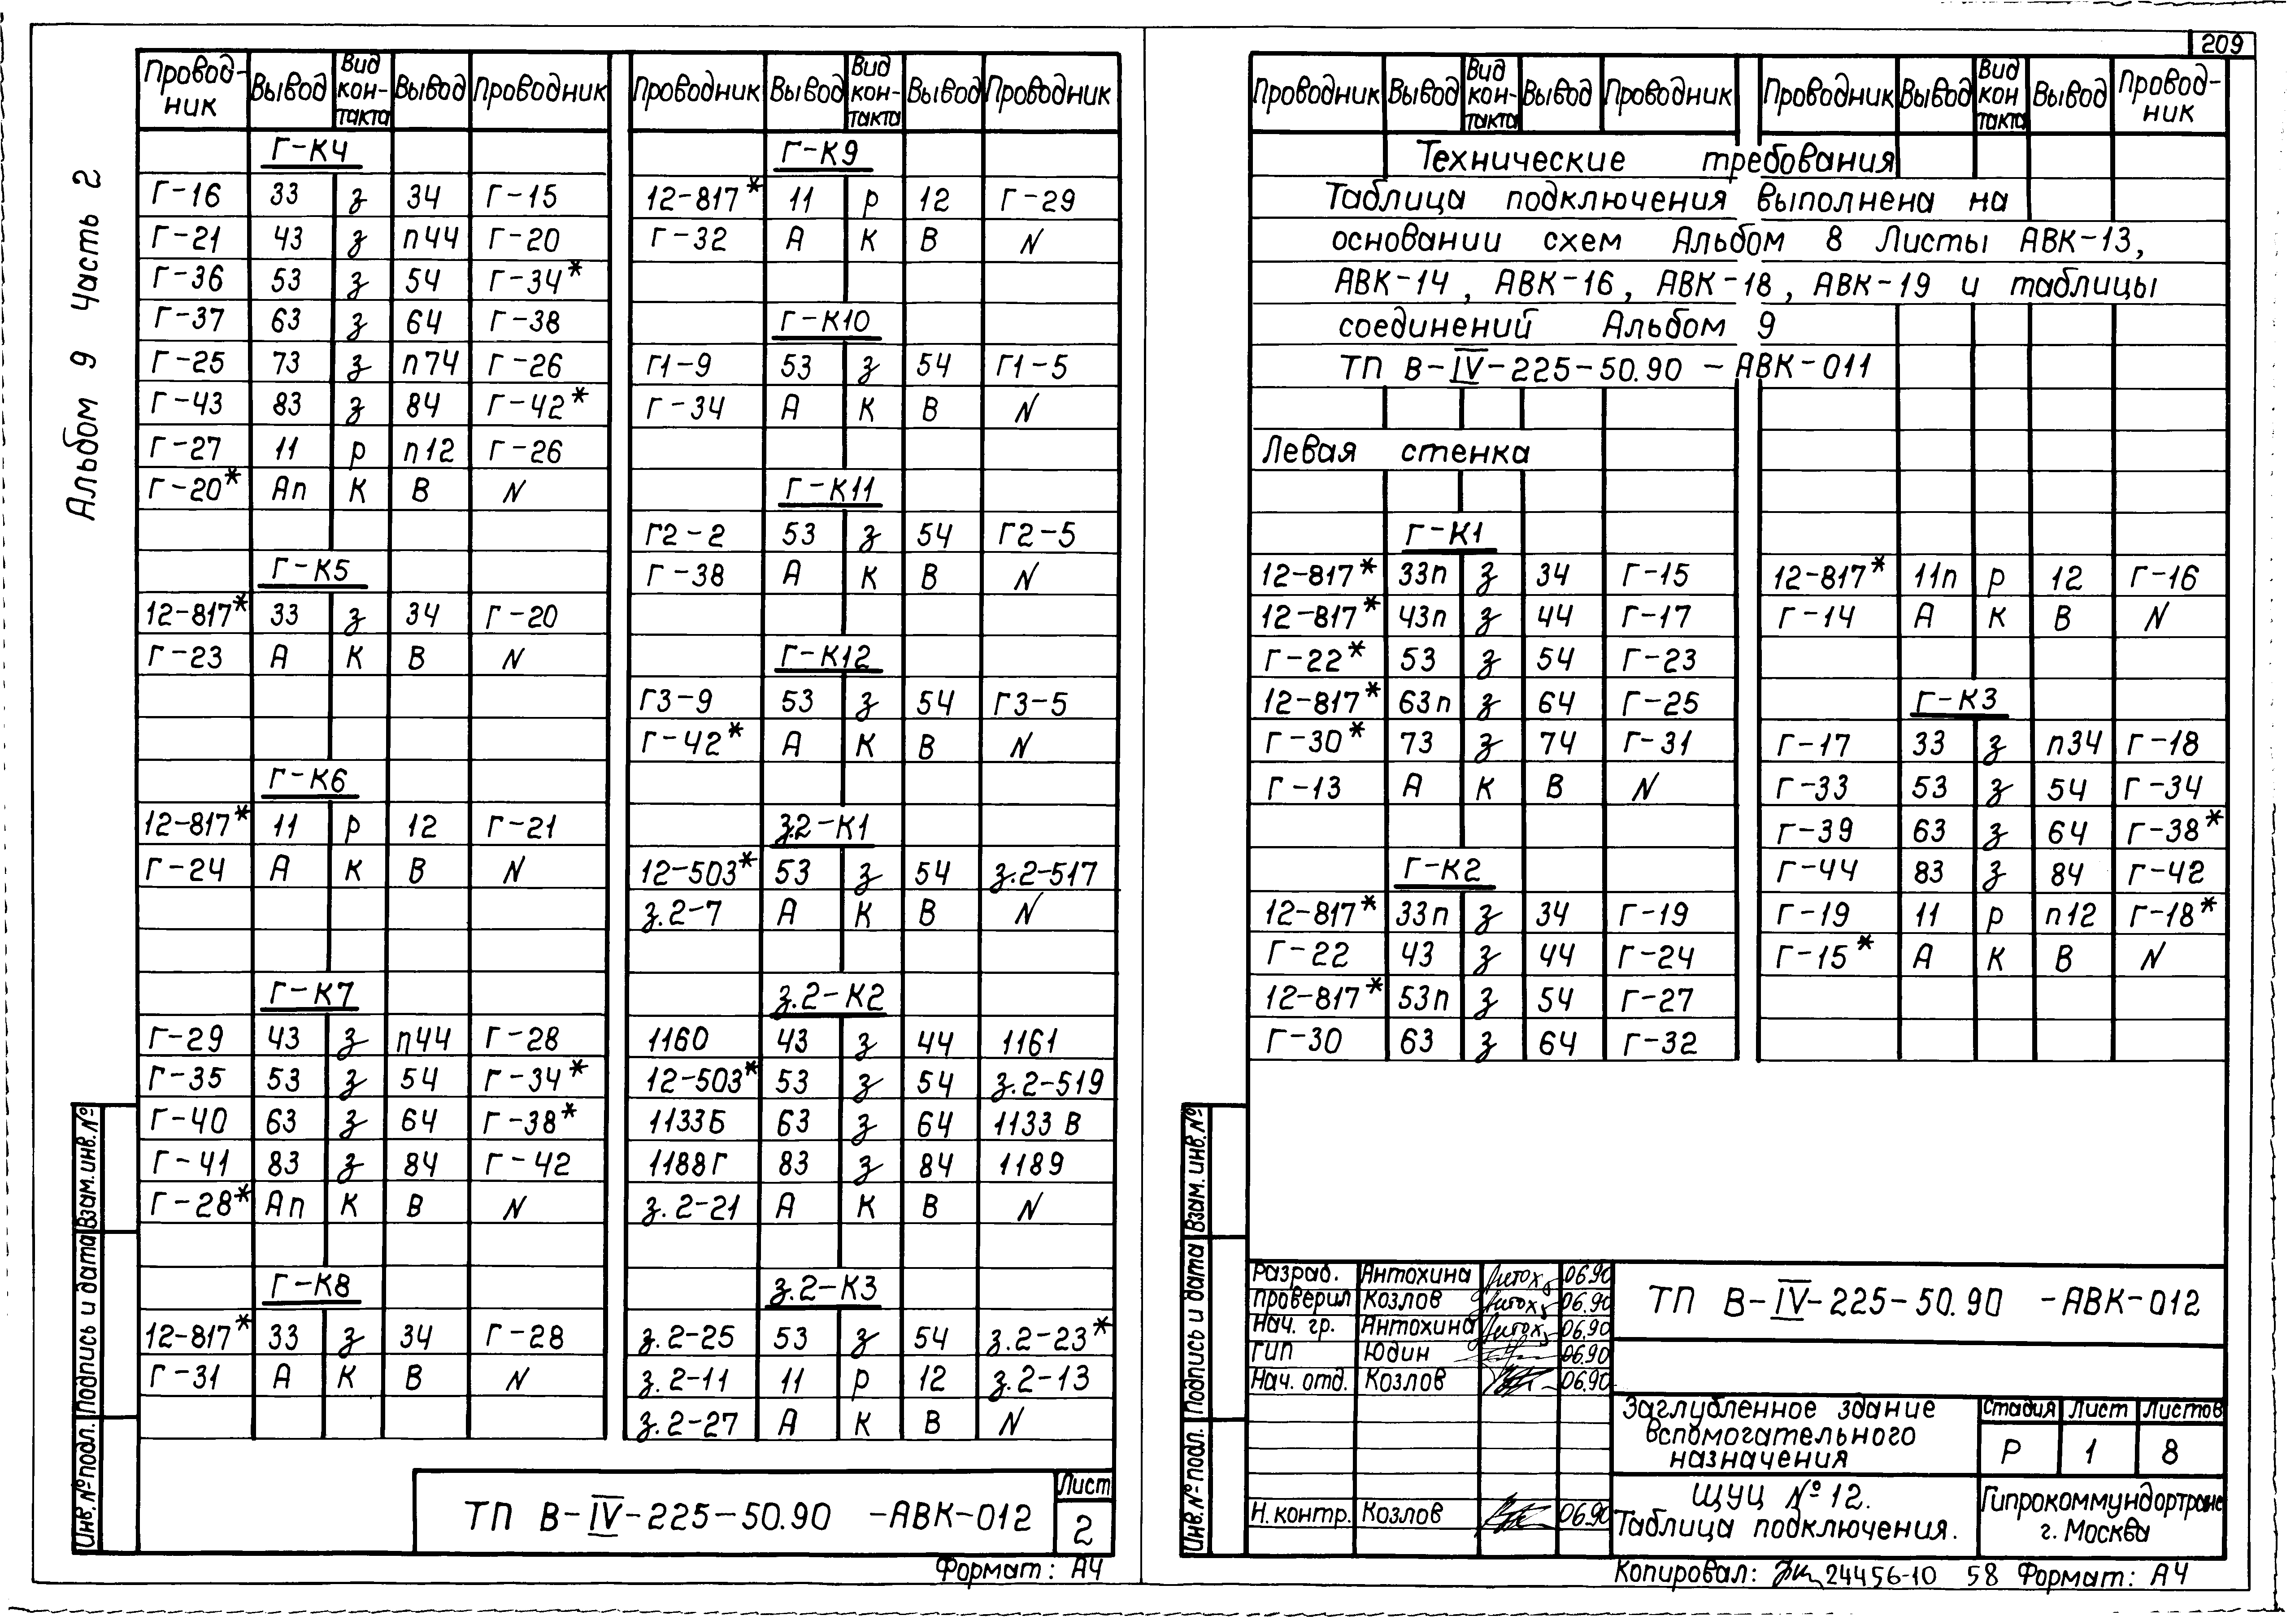 Альбом 9 Часть 2
Провод-ник Вывод Вид кон-такта Вывод Проводник
Г-К4
Г-16 33 з 34 Г-15
Г-21 43 з п44 Г-20
Г-36 53 з 54 Г-34*
Г-37 63 з 64 Г-38
Г-25 73 з п74 Г-26
Г-43 83 з 84 Г-42*
Г-27 11 р п12 Г-26
Г-20* Ап К В N
Г-К5
12-817* 33 з 34 Г-20
Г-23 А К В N
Г-К6
12-817* 11 р 12 Г-21
Г-24 А К В N
Г-К7
Г-29 43 з п44 Г-28
Г-35 53 з 54 Г-34*
Г-40 63 з 64 Г-38*
Г-41 83 з 84 Г-42
Г-28* Ап К В N
Г-К8
12-817* 33 з 34 Г-28
Г-31 А К В N
Проводник Вывод Вид кон-такта Вывод Проводник
Г-К9
12-817* 11 р 12 Г-29
Г-32 А К В N
Г-К10
Г1-9 53 з 54 Г1-5
Г-34 А К В N
Г-К11
Г2-2 53 з 54 Г2-5
Г-38 А К В N
Г-К12
Г3-9 53 з 54 Г3-5
Г-42* А К В N
з.2-К1
12-503* 53 з 54 з.2-517
з.2-7 А К В N
з.2-К2
1160 43 з 44 1161
12-503* 53 з 54 з.2-519
1133Б 63 з 64 1133 В
1188Г 83 з 84 1189
з.2-21 А К В N
з.2-К3
з.2-25 53 з 54 з.2-23*
з.2-11 11 р 12 з.2-13
з.2-27 А К В N
Инв.№подл. Подпись и дата Взам.инв.№
ТП В-IV-225-50.90 -АВК-012
Лист
2
Формат: А4
209
Проводник Вывод Вид кон-такта Вывод Проводник
Проводник Вывод Вид кон такта Вывод Провод-ник
Технические требования
Таблица подключения выполнена на
основании схем Альбом 8 Листы АВК-13,
АВК-14, АВК-16, АВК-18, АВК-19 и таблицы
соединений Альбом 9
ТП В-IV-225-50.90 -АВК-011
Левая стенка
Г-К1
12-817* 33п з 34 Г-15
12-817* 43п з 44 Г-17
Г-22* 53 з 54 Г-23
12-817* 63п з 64 Г-25
Г-30* 73 з 74 Г-31
Г-13 А К В N
Г-К2
12-817* 33п з 34 Г-19
Г-22 43 з 44 Г-24
12-817* 53п з 54 Г-27
Г-30 63 з 64 Г-32
12-817* 11п р 12 Г-16
Г-14 А К В N
Г-К3
Г-17 33 з п34 Г-18
Г-33 53 з 54 Г-34
Г-39 63 з 64 Г-38*
Г-44 83 з 84 Г-42
Г-19 11 р п12 Г-18*
Г-15* А К В N
Инв.№подл. Подпись и дата Взам.инв.№
Разраб. Антохина 06.90
Проверил Козлов 06.90
Нач. гр. Антохина 06.90
ГИП Юдин 06.90
Нач. отд. Козлов 06.90
Н.контр. Козлов 06.90
ТП В-IV-225-50.90 -АВК-012
Заглубленное здание
вспомогательного
назначения
Стадия Лист Листов
Р 1 8
ЩУЦ №12.
Таблица подключения.
Гипрокоммундортранс
г. Москва
Копировал: 24456-10 58 Формат: А4